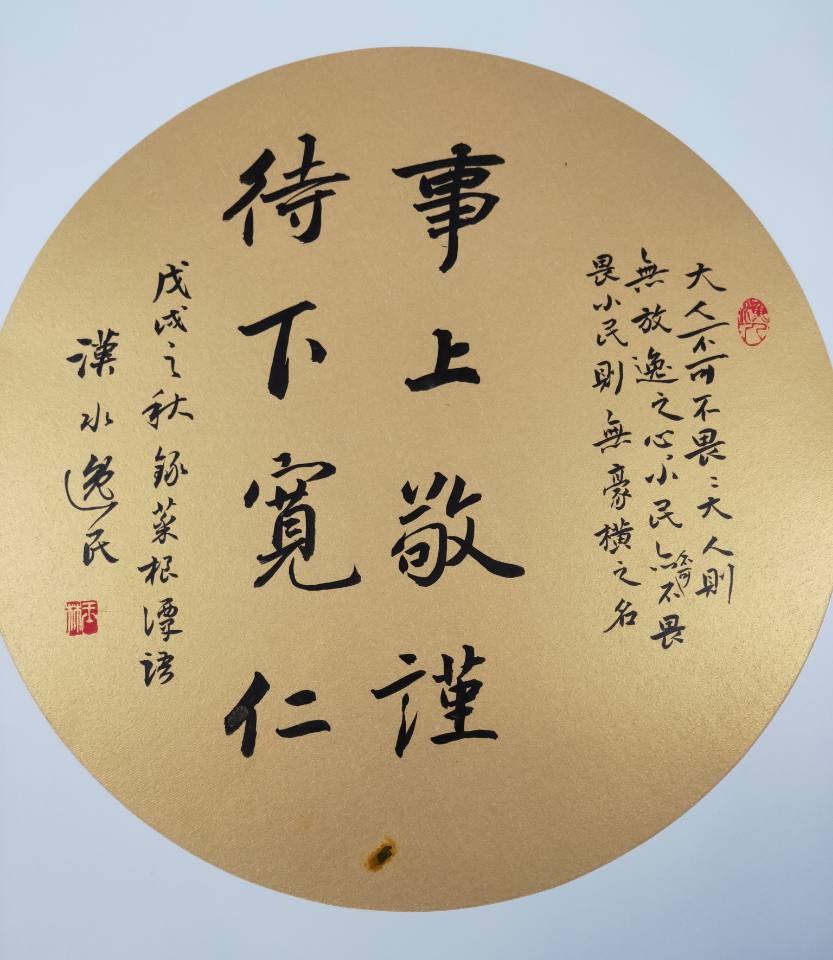 大人不可不畏〻大人則
無放逸之心小民亦不可不畏
畏小民則無豪橫之名
事上敬謹
待下寬仁
戊戌之秋錄菜根譚語
漢水逸民